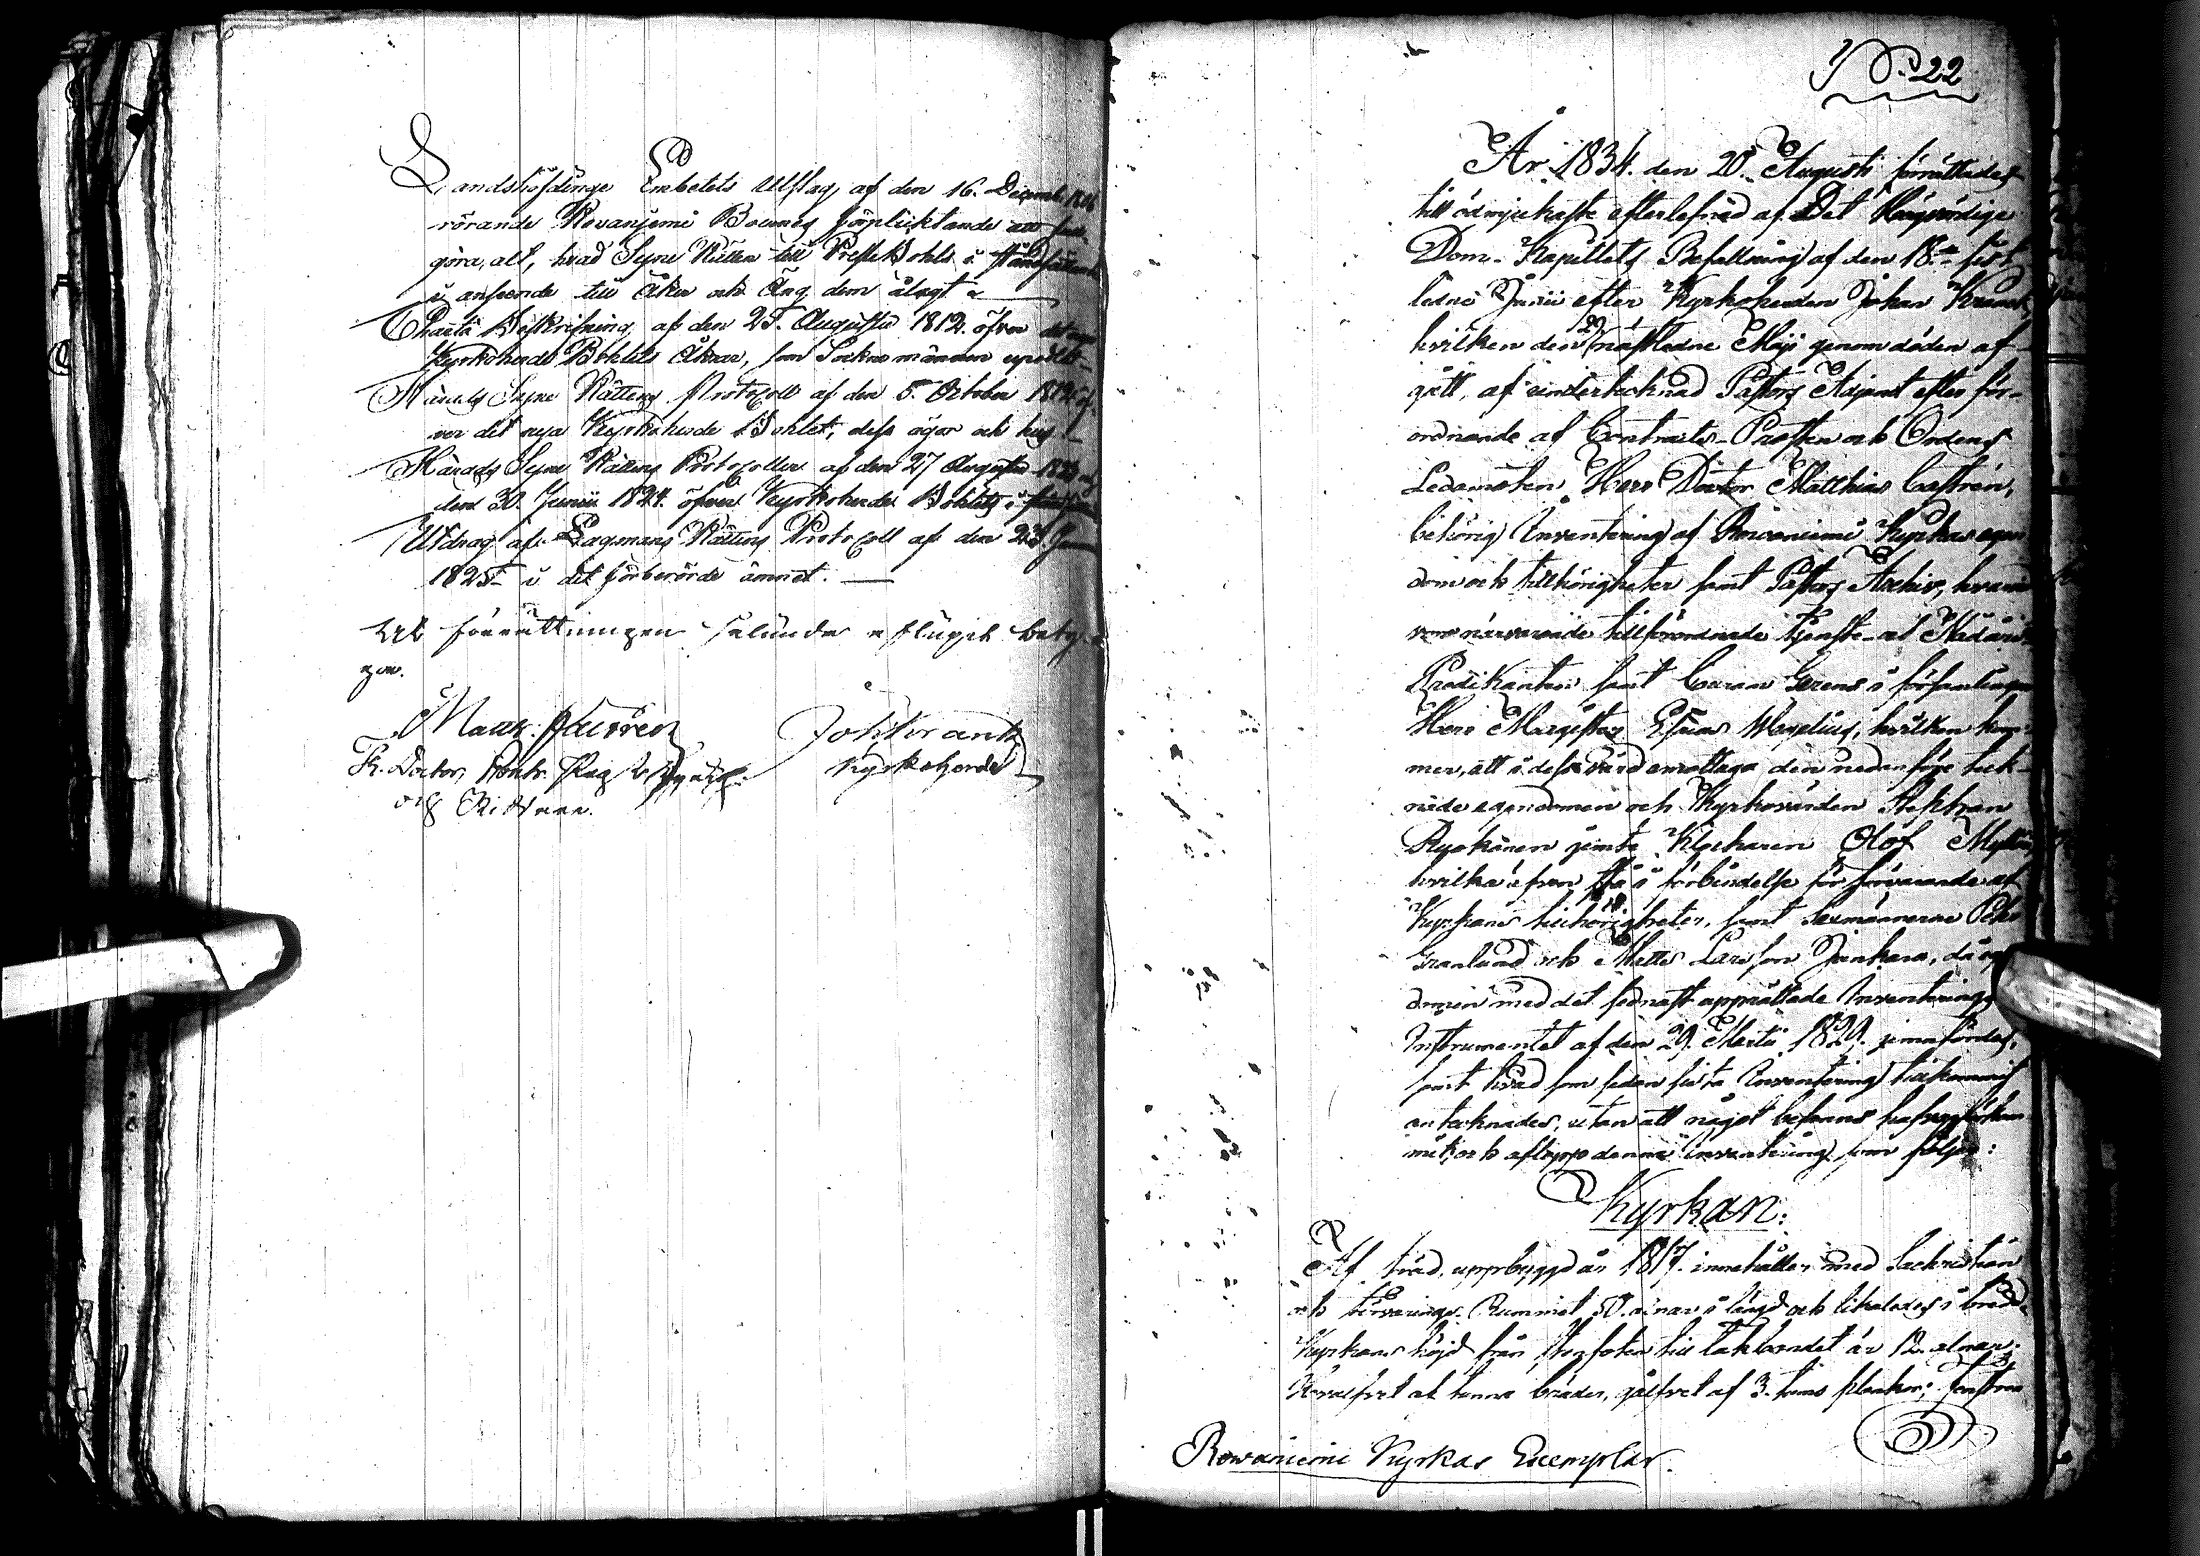 Landshöfdinge Embetets Utslag af den 16. Decemb.
rörande Rovaniemi Boernes förplicktande att
göra, alt, hvad Syne Rätten till Preste Bohls i ståndsättande
i anseende till Åker och Äng dem ålagt
Charta Beskrifning af den 25. Augusti 1812. öfver det nya
Kyrkoherde Bohlets Åkrar, som Sockne männen upodlat
Härads Syne Rättens Protocoll af den 5. October 1812 öf-
ver det nya Kyrkoherde Bohlet, dess ägor och hus
Härads Syne Rättens Protocoller af den 27 Augusti
den 30. Junii 1824. öfver Kyrkoherde Bohlets
Utdrag af Lagmans Rättens Protocoll af den 23.
1825 i det förberörde ämnet.
At förrättningen sålunda aflupit bety-
gar.
Matth. Castrén Joh Wrank
Th. Doctor, Kontr. Kyrkoherde
och Riddare.
No. 22
År 1834. den 20. Augusti förrättades
till ödmjukaste efterlefnad af Det Högvördige
Dom-Kapitlets Befallning af den 18.de sist
ledne Junii efter Kyrkoherden Johan
hvilken den 29 nästledne Maji genom döden af-
gått, af undertecknad Pastors Adjunct efter för-
ordnande af Contracts-Prosten och Ordens
Ledamoten Herr Doctor Matthias Castrén,
behörig Inventering af Rovaniemi Kyrkas egen
dom och tillhörigheter samt Pastors Archiv, hvarvid
voro närvarande tillförordnade tjenste- och Nådårs
Predikanten samt Curam Gerens i församlingen
Herr Magister Esaias Wegelius, hvilken kom-
mer, att i dess vård emottaga den nedanföre teck-
nade egendomen och Kyrkovärden Stephan
Ryokänen jemte Klockaren Olof
hvilka äfven stå i förbindelse för förvarande af
Kyrkans tillhörigheter, samt Sexmännerne Petter
Granlund och Matts Larsson Jankara, då eg
domen med det sednast upprättade Inventerings
Instrumentet af den 29. Martii 1820. jemnfördes,
samt hvad som sedan sista Inventering tillkommit
antecknades, utan att något befans hafva
mit; och aflopp denna inventering som följer:
Kyrkan:
Af träd, uppbyggd år 1817. innehåller med Sacristian
och förvarings Rummet 50. alnar i längd och likaledes i bredd.
Kyrkans höjd från stegfoten till takbandet är 12. alnar;
Hvalfvet af tunna bräder, golfvet af 3. tums plankor; fönstren
Rovaniemi Kyrkas Exemplar.